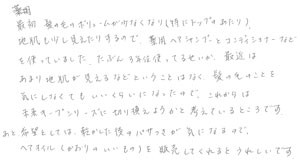 薬用
最初 髪の毛のボリュームが少なくなり(特にトップのあたり)
地肌も少し見えたりするので、薬用ヘアシャンプーとコンディショナーなど
を使っていました。たぶん5年位使ってるせいか、最近は
あまり地肌が見えるなどということはなく、髪の毛のことを
気にしなくてもいいくらいになったので、これからは
未来のケアシリーズに切り換えようかと考えているところです。
あと希望としては、乾かした後のパサつきが気になるので、
ヘアオイル(かおりのいいもの)を販売してくれるとうれしいです